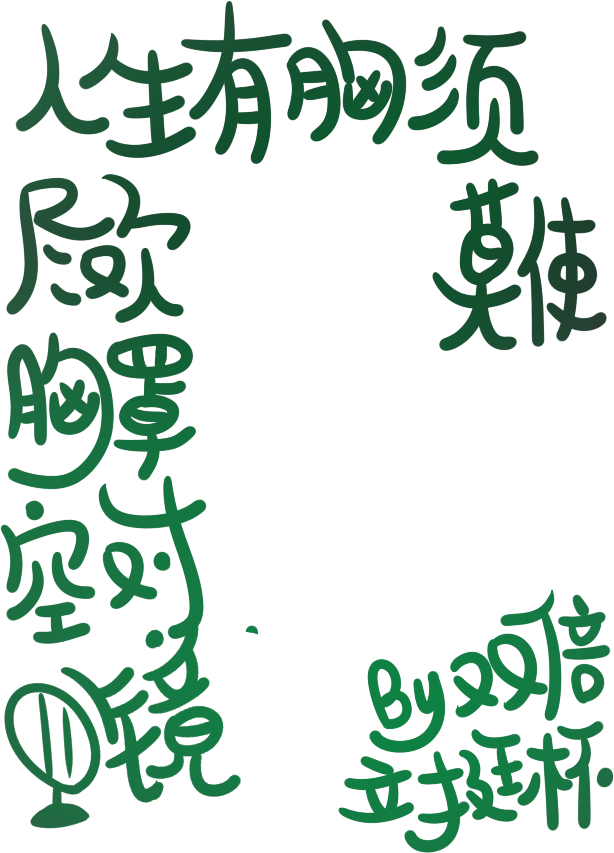 人生有胸须
尽欢
莫使
胸罩
空对
镜
By双倍
立挺杯